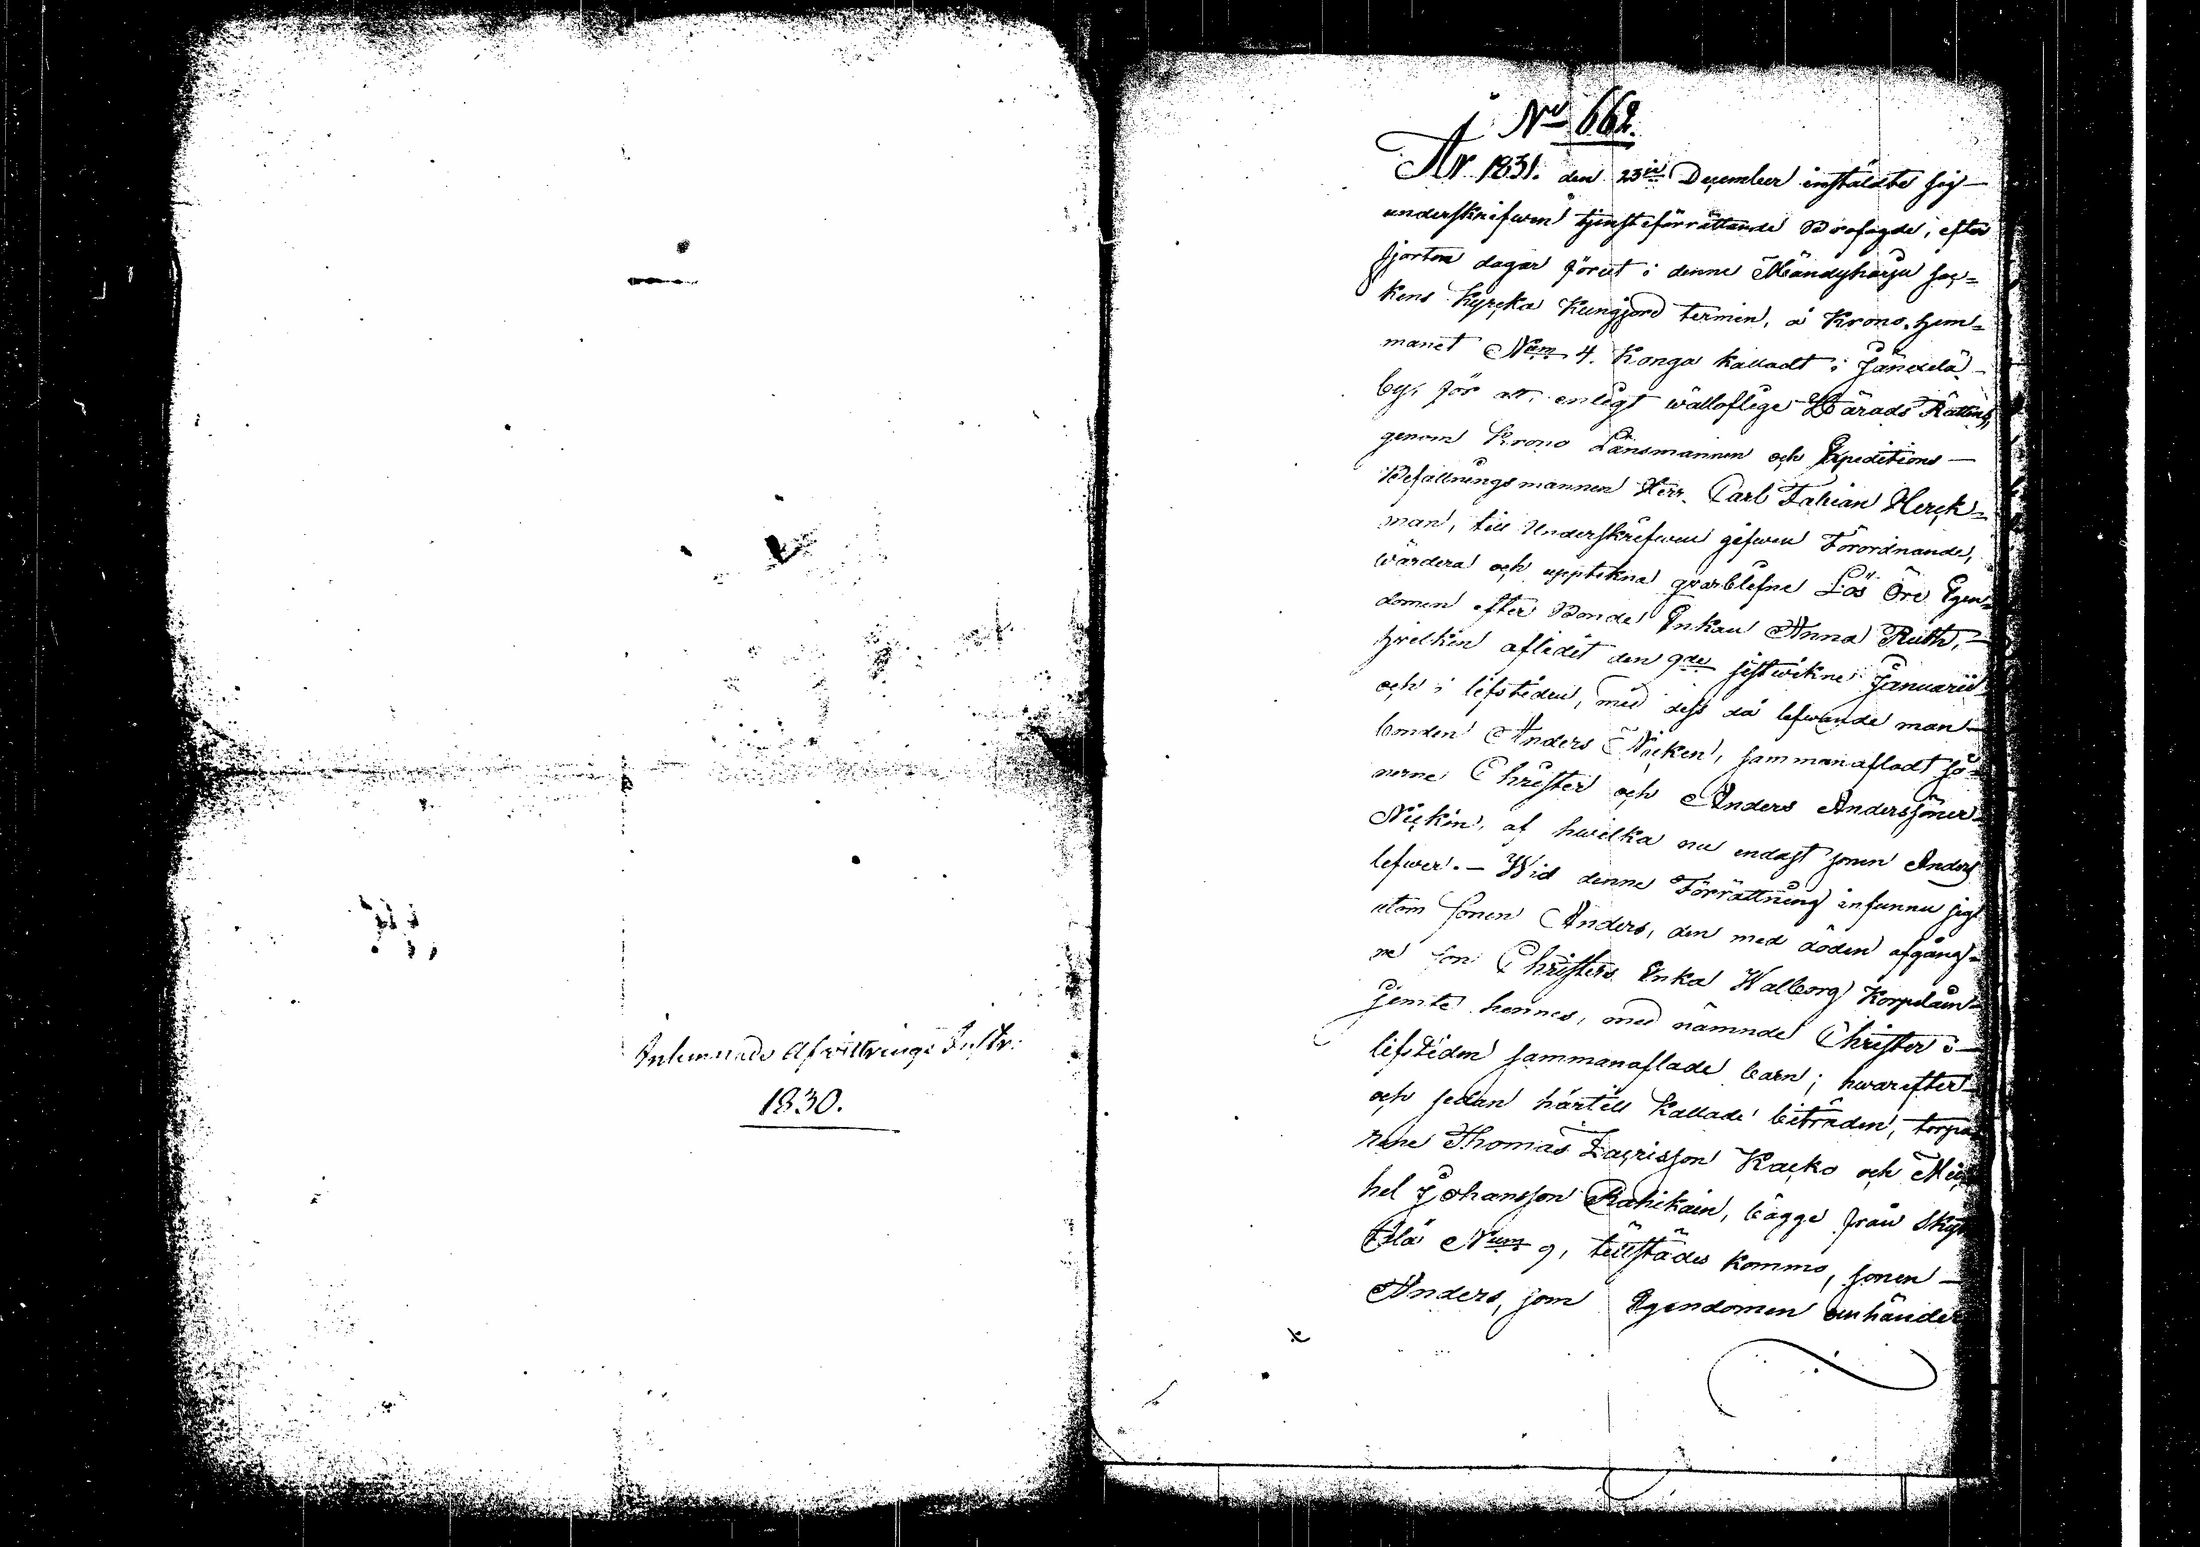 Inlemnade Afvittrings Instr:
1830.
No 662.
År 1831. den 23ie December instäldte sig
underskrifwen tjensteförrättande Brofogde, efter
fjorton dagar förut i denne Mändyharju soc=
kens kyrcka kungjord termin, å Krono hem=
manet Num 4. Konga kalladt i Jändelä
by, för att, enligt wällofliga Härads Rättens,
genom Krono Länsmannen och Expeditions
Befallningsmannen Herr Carl Fabian Herck=
man, till Underskrifwen gifwen Förordnande,
wärdera och upptekna qvarblefne Lös Öre Egen=
domen efter Bonde Enkan Anna Ruth,
hvilken aflidit den 9de sistwikne Januarii
och i lifstiden, med dess då lefwande man
bonden Anders Nicken, sammanafladt sö=
nerne Christer och Anders Anderssöner
Nickin, af hwilka nu endast sonen Anders
lefwer. - Wid denne Förrättning infunno sig
utom sonen Anders, den med döden afgång=
ne son Christers Enka Walborg Korpelain
jemte hennes, med nämnde Christer i
lifstiden sammanaflade barn; hwarefter
och sedan härtill kallade biträden, torpa
rene Thomas Zacrisson Kacko och Mic
hel Johansson Rahikain, bägge från Skyt
tälä Num 9, tillstädes kommo, sonen
Anders, som Egendomen omhänder